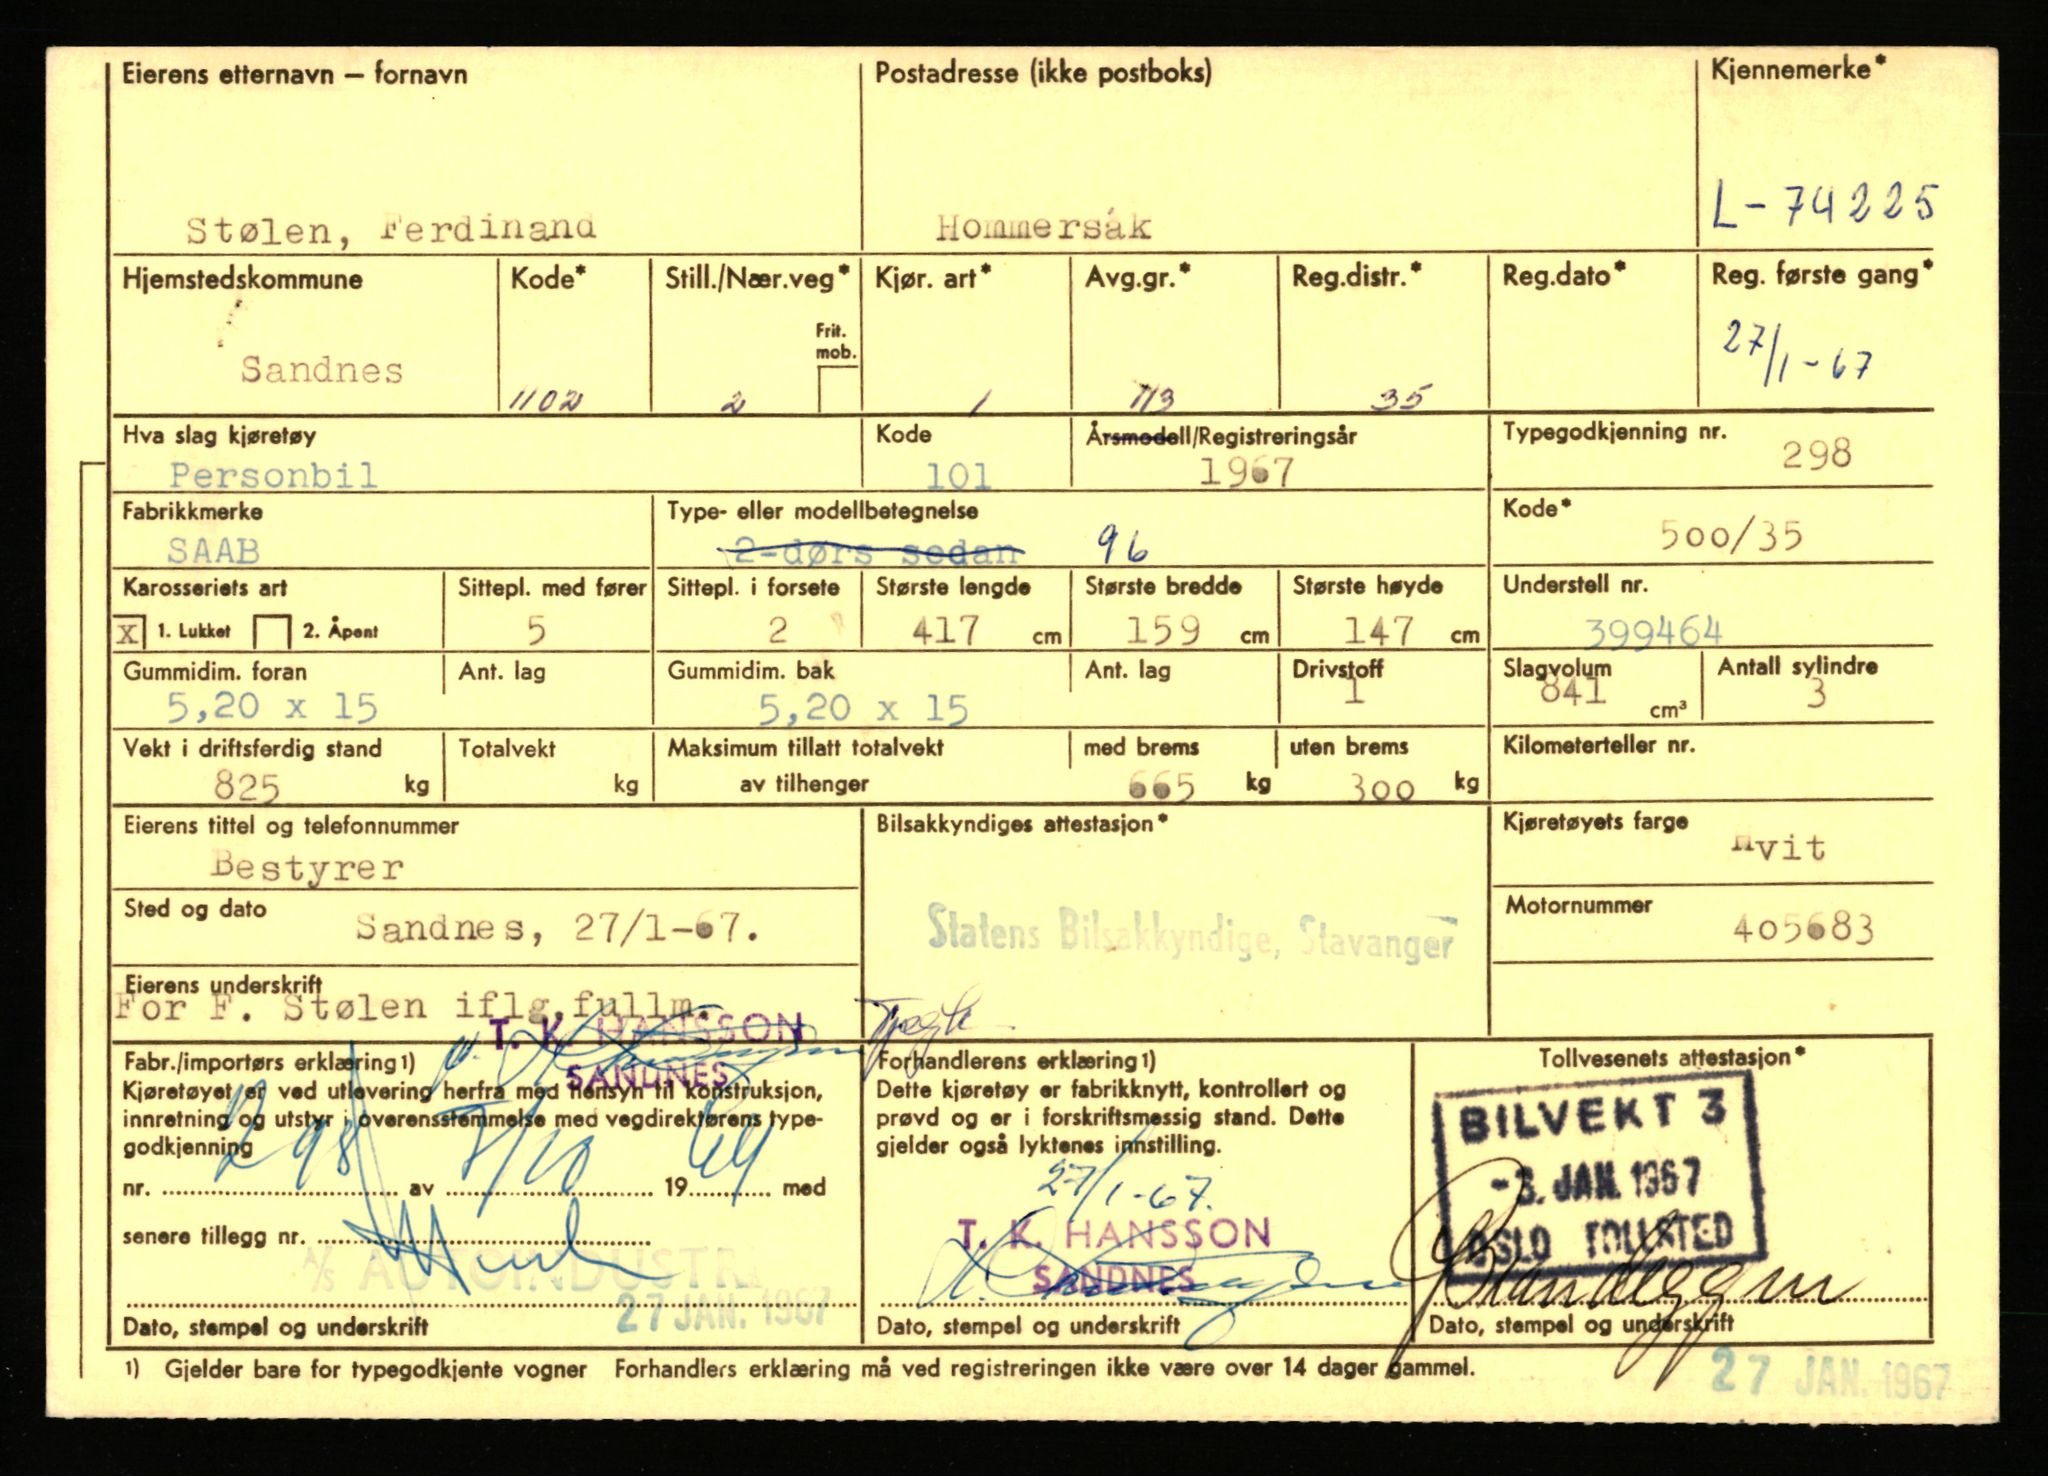 Eierens etternavn – fornavn
Postadresse (ikke postboks)
Kjennemerke*
Stølen, Ferdinand
Hommersåk
L-74225
Hjemstedskommune
Kode*
Still./Nær.veg*
Kjør. art*
Avg.gr.*
Reg.distr.*
Reg.dato*
Reg. første gang*
Frit.
mob.
Sandnes
1102
2
1
113
35
27/1-67
Hva slag kjøretøy
Kode
Årsmodell/Registreringsår
Typegodkjenning nr.
Personbil
101
1967
298
Fabrikkmerke
Type- eller modellbetegnelse
Kode*
SAAB
2-dørs sedan 96
500/35
Karosseriets art
Sittepl. med fører
Sittepl. i forsete
Største lengde
Største bredde
Største høyde
Understell nr.
X 1. Lukket 2. Åpent
5
2
417 cm
159 cm
147 cm
399464
Gummidim. foran
Ant. lag
Gummidim. bak
Ant. lag
Drivstoff
Slagvolum
Antall sylindre
5,20 x 15
5,20 x 15
1
841 cm³
3
Vekt i driftsferdig stand
Totalvekt
Maksimum tillatt totalvekt
med brems
uten brems
Kilometerteller nr.
825 kg
kg
av tilhenger
665 kg
300 kg
Eierens tittel og telefonnummer
Bilsakkyndiges attestasjon*
Kjøretøyets farge
Bestyrer
Hvit
Sted og dato
Sandnes, 27/1-67.
Statens Bilsakkyndige, Stavanger
Motornummer
405683
Eierens underskrift
For F. Stølen iflg.fullm.
T. K. HANSSON
SANDNES
Fabr./importørs erklæring 1)
Kjøretøyet er ved utlevering herfra med hensyn til konstruksjon,
innretning og utstyr i overensstemmelse med vegdirektørens type-
godkjenning
nr. 298 av 8/10 1964 med
senere tillegg nr.
A/S AUTOINDUSTRI
27 JAN. 1967
Dato, stempel og underskrift
Forhandlerens erklæring 1)
Dette kjøretøy er fabrikknytt, kontrollert og
prøvd og er i forskriftsmessig stand. Dette
gjelder også lyktenes innstilling.
27/1-67.
T. K. HANSSON
SANDNES
Dato, stempel og underskrift
Tollvesenets attestasjon*
BILVEKT 3
-3. JAN. 1967
OSLO TOLLSTED
Dato, stempel og underskrift
1) Gjelder bare for typegodkjente vogner Forhandlers erklæring må ved registreringen ikke være over 14 dager gammel.
27 JAN. 1967